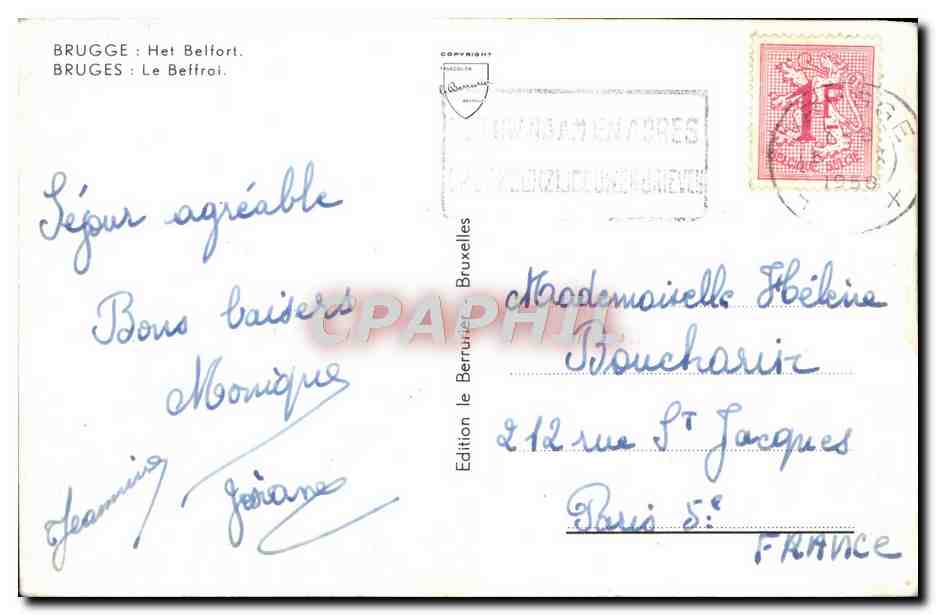 BRUGGE : Het Belfort.
BRUGES : Le Beffroi.
COPYRIGHT
Séjour agréable
Bons baisers
Monique
Jeannine
Edition le Berrurier Bruxelles
1F
BELGIQUE BELGIE
1958
X
CPAPHIL
Mademoiselle Hélène
Boucharir
212 rue St Jacques
Paris 5e
FRANCE